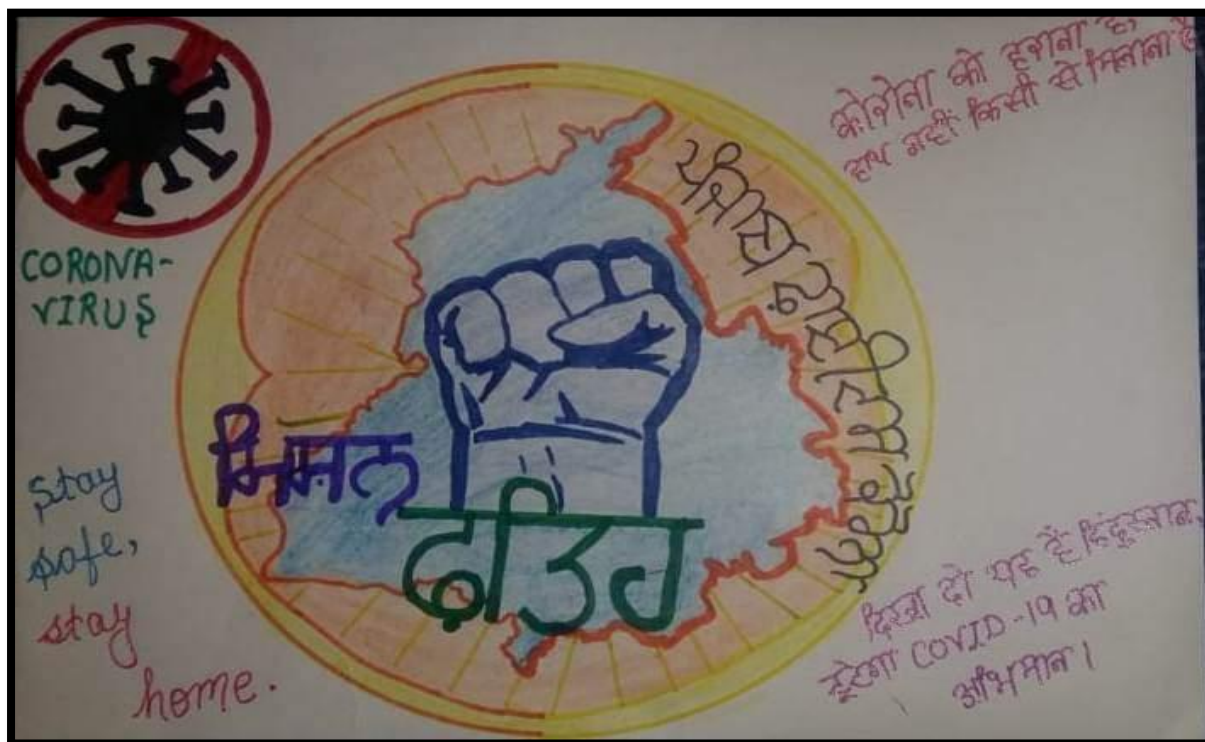 CORONA-
VIRUS
कोरोना को हराना है,
हाथ नहीं किसी से मिलाना है
ਪੰਜਾਬ
ਮਿਸ਼ਨ
ਫਤਿਹ
stay
safe,
stay
home.
दिखा दो यह है हिंदुस्तान,
टूटेगा COVID-19 का
अभिमान।